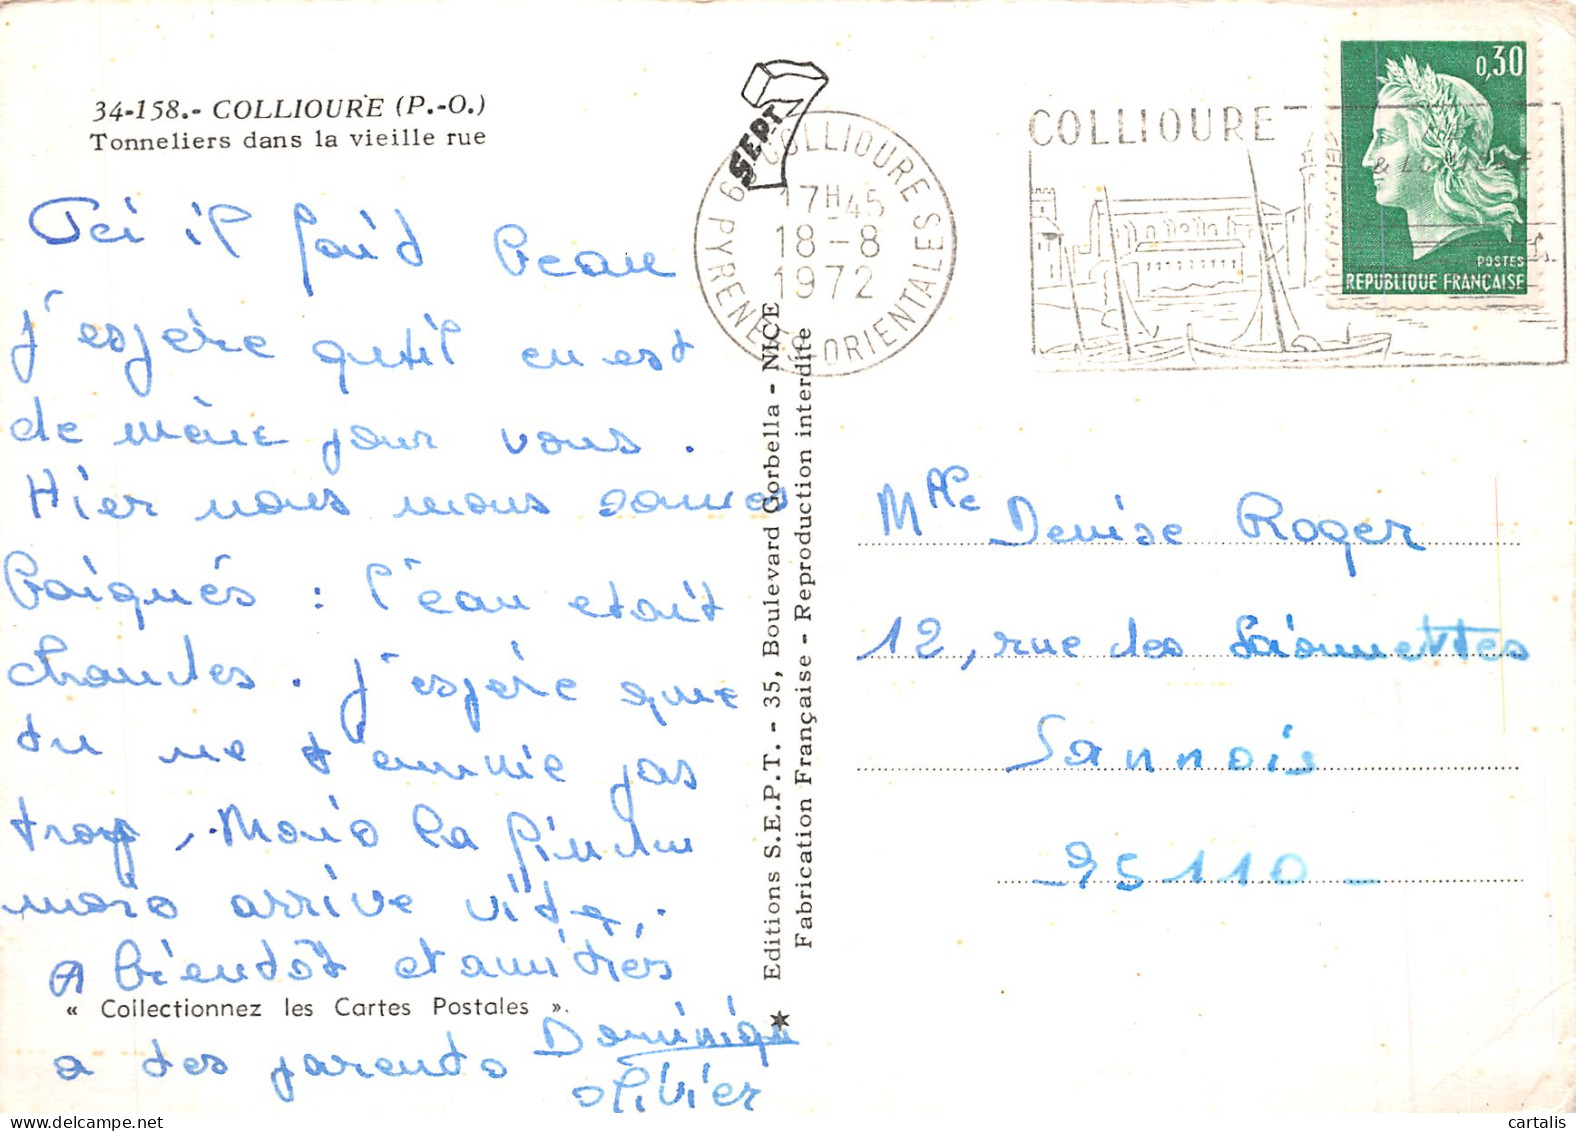 34-158.- COLLIOURE (P.-O.)
Tonneliers dans la vieille rue
Ici il fait beau
j'espère qu'il en est
de même pour vous.
Hier nous nous sommes
baignés : l'eau etait
chaudes. J'espère que
tu ne t'ennuie pas
trop, . Mais la fin du
mois arrive vite,.
A bientôt et amitiés
« Collectionnez les Cartes Postales ».
a tes parents Dominique
Olivier
SEPT 7
Editions S.E.P.T. - 35, Boulevard Gorbella - NICE
Fabrication Française - Reproduction interdite
66 COLLIOURE
17H45
18-8
1972
PYRENEES ORIENTALES
COLLIOURE
0,30
POSTES
REPUBLIQUE FRANÇAISE
Mlle Denise Roger
12, rue des
Sannois
95110
cartalis